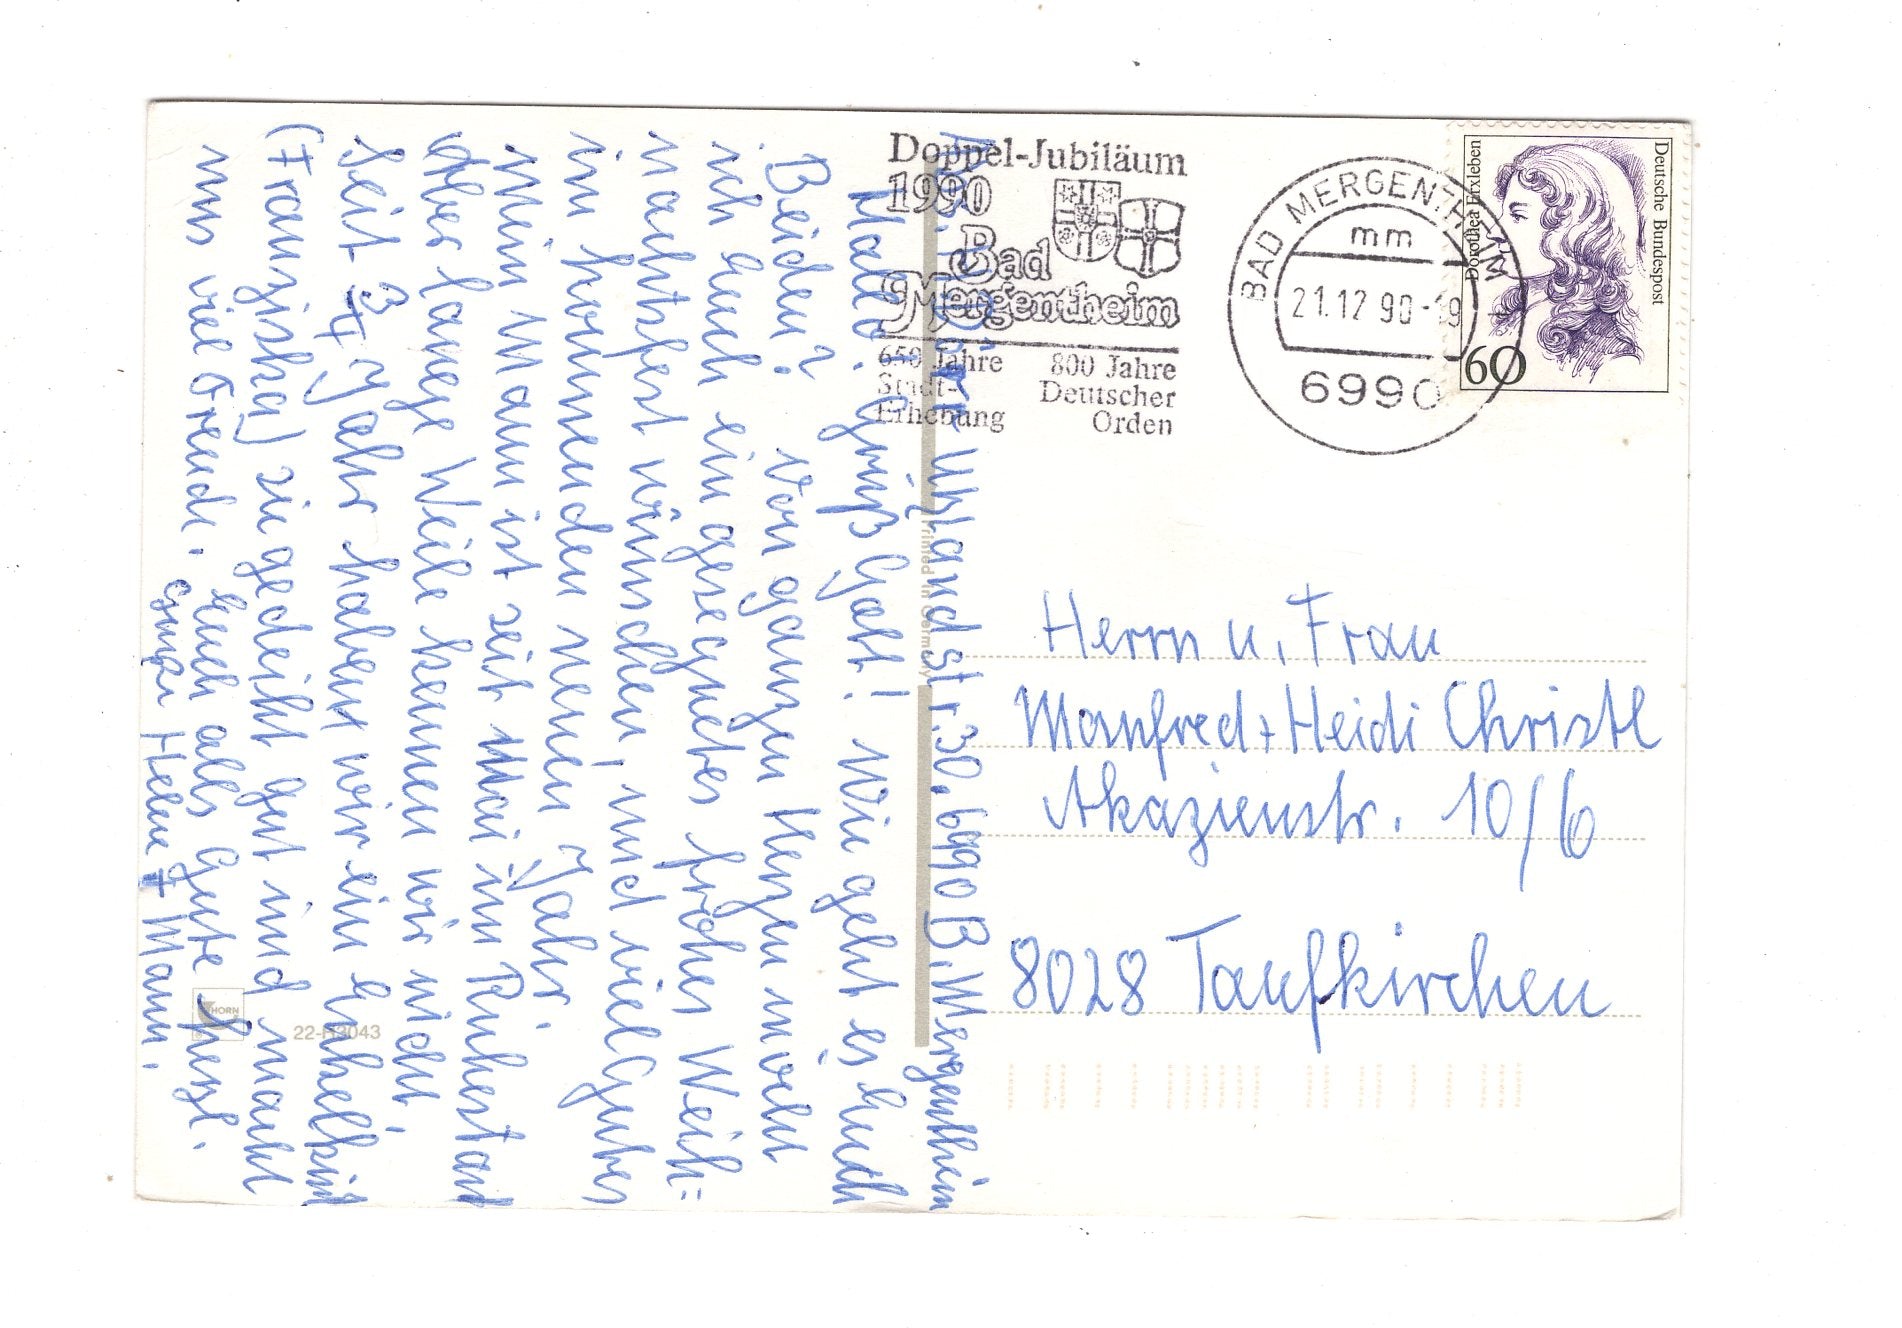 Uhlandstr. 30, 6990 B. Mergentheim
Hallo. Grüß Gott! Wie geht es Euch
Beiden? Von ganzen Herzen möcht
ich Euch ein gesegnetes frohes Weih=
nachtsfest wünschen, und viel Gutes
im kommenden neuen Jahr.
Mein Mann ist seit Mai im Ruhestand
Aber lange Weile kennen wir nicht.
Seit 3/4 Jahr haben wir ein Enkelkind
(Franziska) sie gedeiht gut und macht
uns viel Freude. Euch alls Gute herzl.
Helene + Mann.
Doppel-Jubiläum
1990
Bad
Mergentheim
650 Jahre
Stadt-
Erhebung
800 Jahre
Deutscher
Orden
BAD MERGENTHEIM
mm
21.12.90-19
6990
Deutsche Bundespost
Dorothea Erxleben
60
Printed in Germany
Herrn u. Frau
Manfred + Heidi Christl
Akazienstr. 10/6
8028 Taufkirchen
HORN
22-H3043